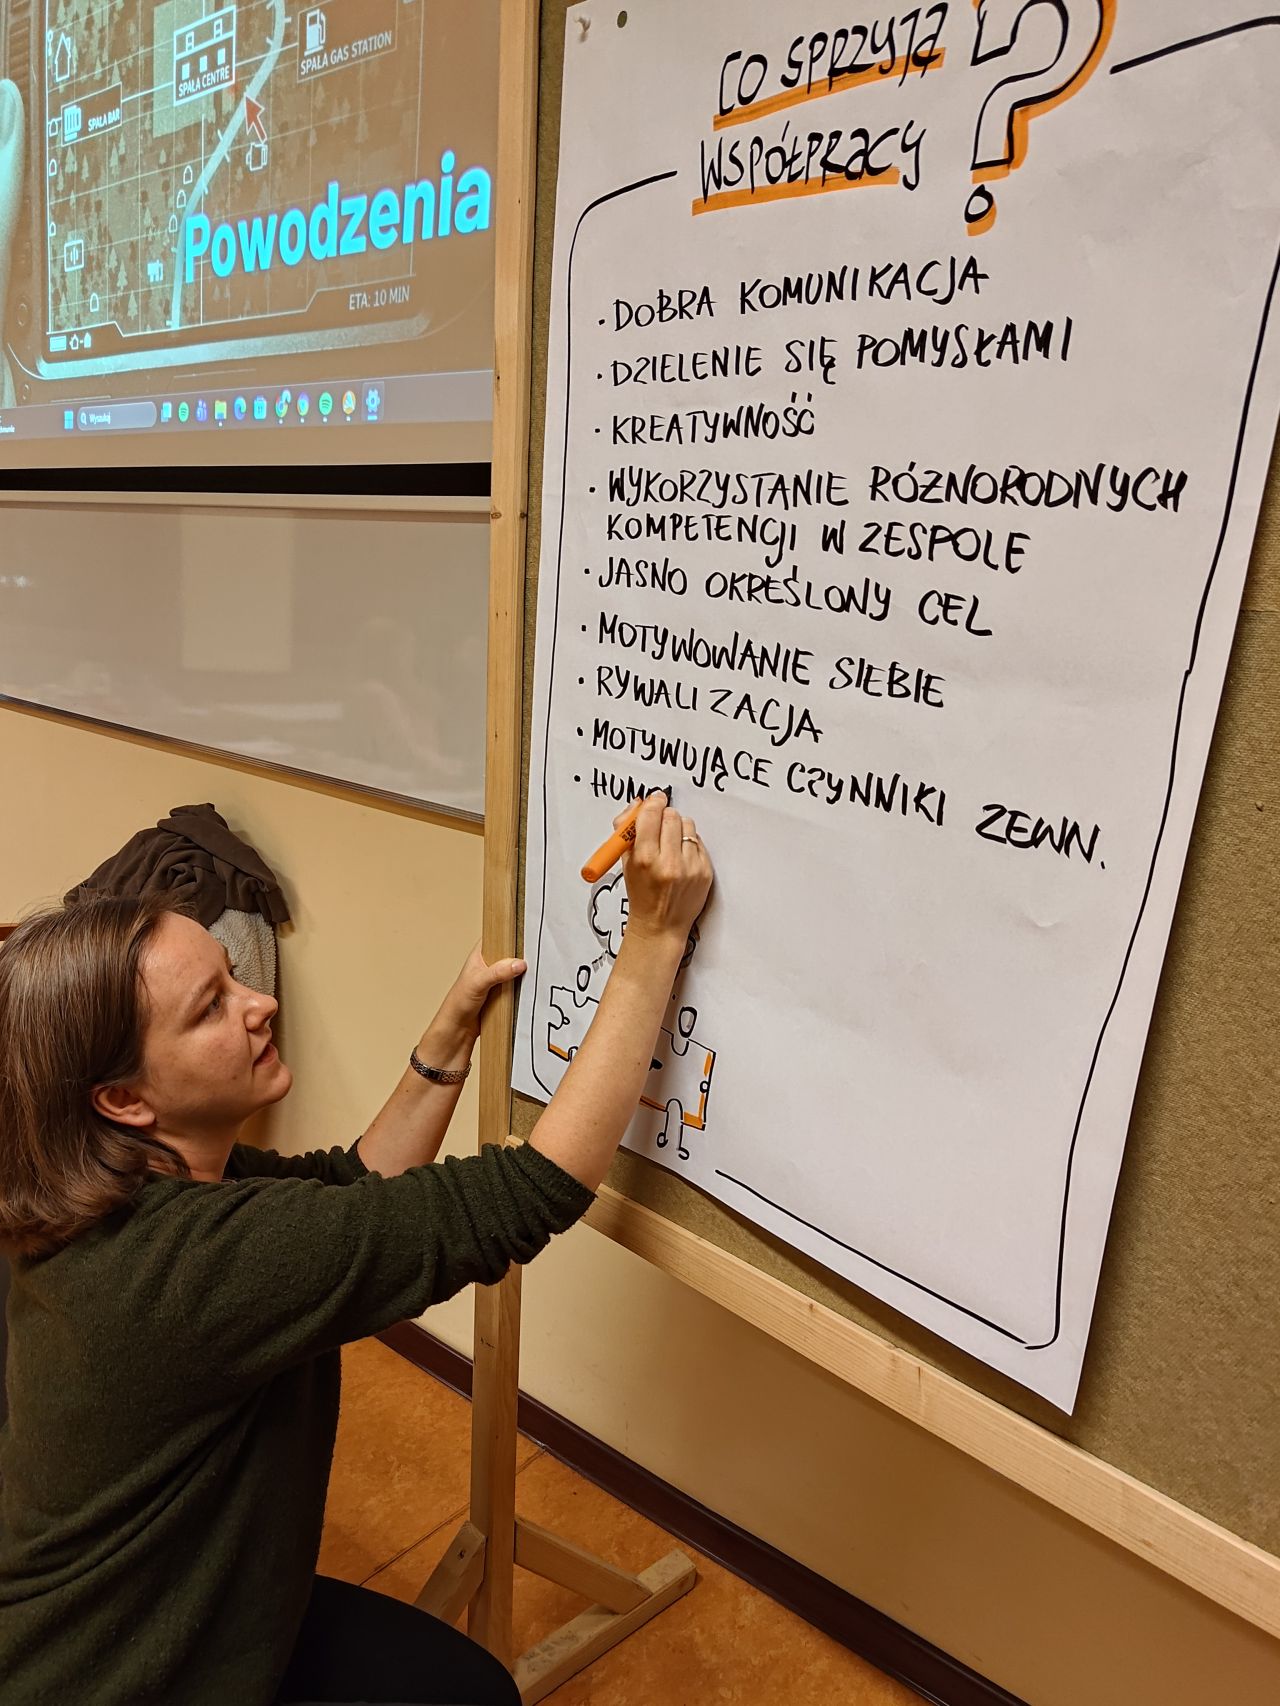 SPAŁA CENTRE
SPAŁA GAS STATION
SPAŁA BAR
Powodzenia
ETA: 10 MIN
Wyszukaj
CO SPRZYJA
WSPÓŁPRACY ?
• DOBRA KOMUNIKACJA
• DZIELENIE SIĘ POMYSŁAMI
• KREATYWNOŚĆ
• WYKORZYSTANIE RÓŻNORODNYCH
KOMPETENCJI W ZESPOLE
• JASNO OKREŚLONY CEL
• MOTYWOWANIE SIEBIE
• RYWALIZACJA
• MOTYWUJĄCE CZYNNIKI ZEWN.
• HUMO